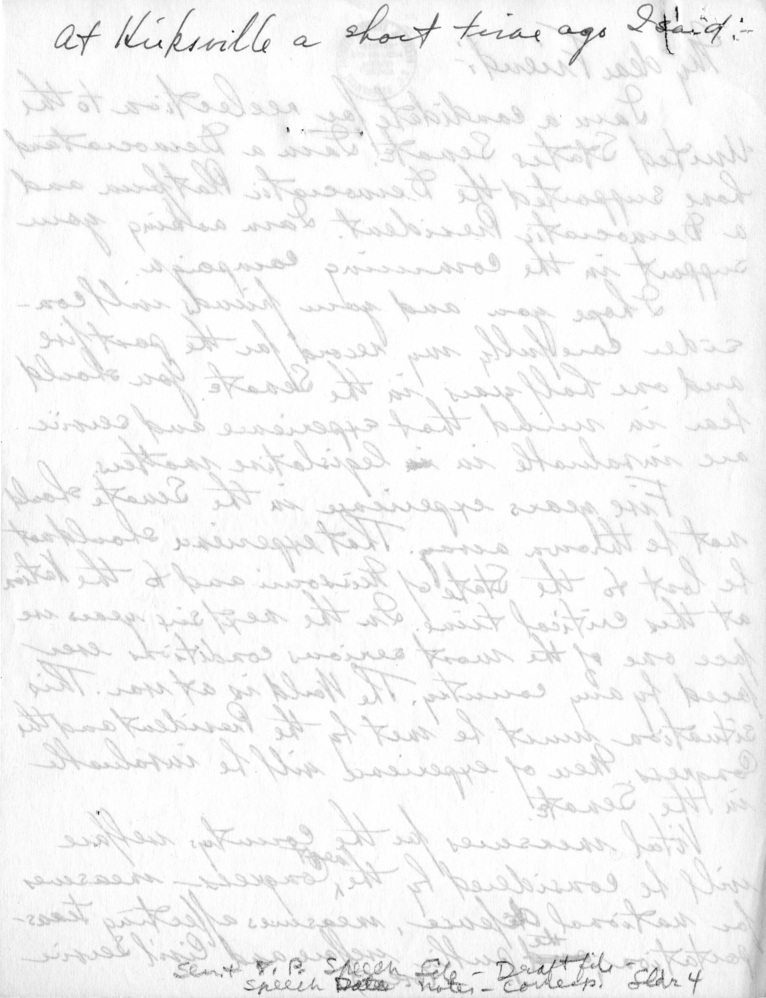 At Kirksville a short time ago I said:-
My dear Friend:-
I am a candidate for reelection to the
United States Senate. I am a Democrat and
have supported the Democratic Platform and
a Democratic President. I am asking your
support in the comming campaign.
I hope you and your friends will con-
sider carefully my record for the past five
and one half years in the Senate. You should
bear in mind that experience and service
are invaluable in legislative matters.
Five years experience in the Senate should
not be thrown away. That experience should not
be lost to the State of Missouri and to the Nation
at this critical time. In the next six years we
face one of the most serious conditions ever
faced by any country. The World is at war. This
situation must be met by the President and the
Congress. Men of experience will be invaluable
in the Senate.
Vital measures for the countrys welfare
will be considered by the Congress - measures
for national defense, measures affecting trans-
portation, Civil Service
Sen. & V. P. Speech File - Draft file -
Speech Data notes - Corresp. Fldr 4